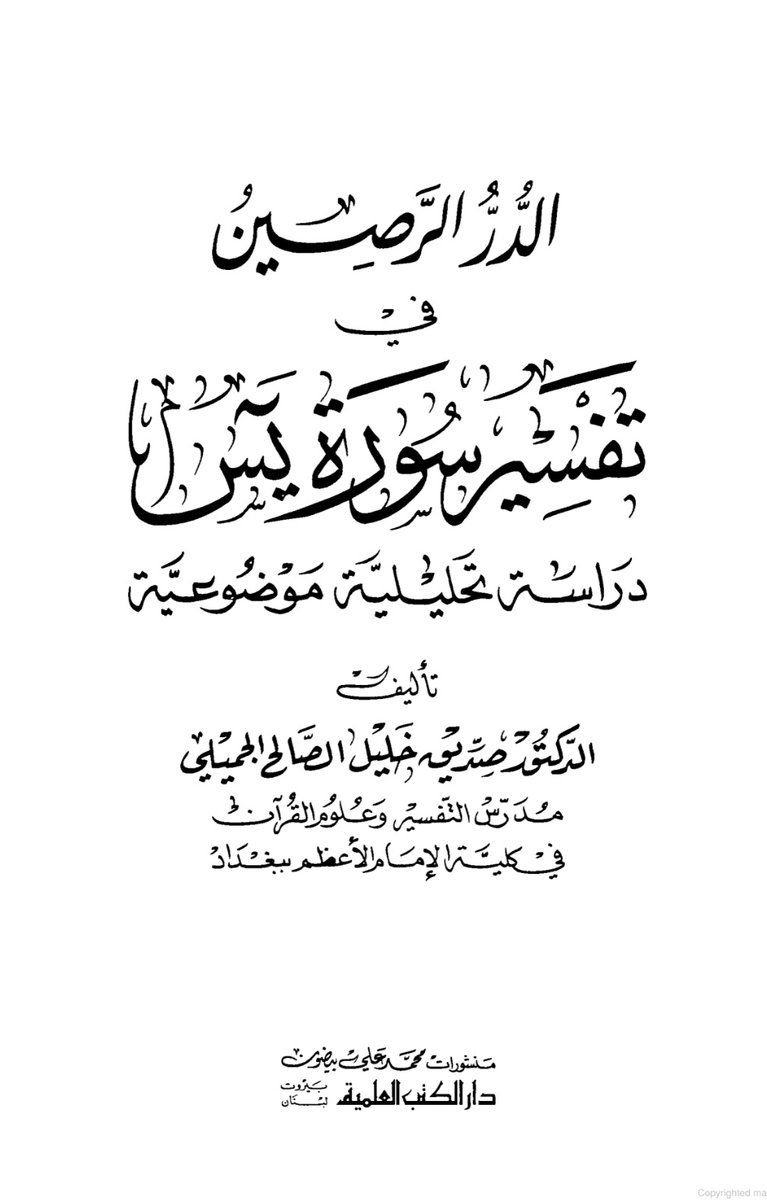 الدُّرُّ الرَّصِينُ
في
تَفْسِير سُورَة يَس
دراسة تحليليَّة مَوْضُوعيَّة
تأليف
الدّكتور صِدِّيق خَليل الصَّالح الجميلي
مُدَرّس التَّفسير وَعُلوم القُرآن
في كليَّة الإمَام الأعظم ببغدَاد
منشورات محمد علي بيضون
دار الكتب العلمية بيروت لبنان
Copyrighted ma